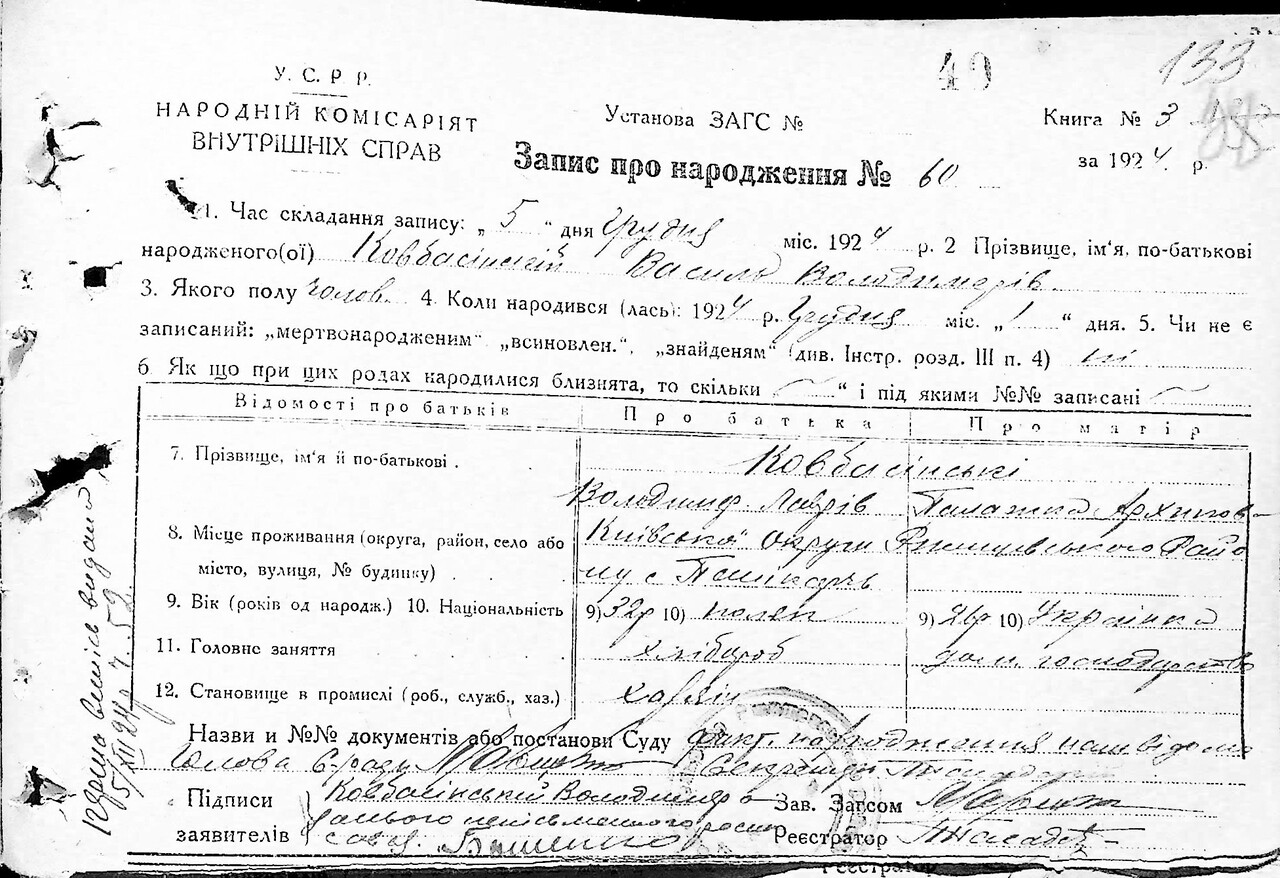 49
133
У. С. Р. Р.
НАРОДНІЙ КОМІСАРІЯТ
ВНУТРІШНІХ СПРАВ
Установа ЗАГС №
Книга № 3
за 1924 р.
Запис про народження № 60
1. Час складання запису: „ 5 “ дня Грудня міс. 1924 р. 2 Прізвище, ім'я, по-батькові
народженого(ої) Ковбасінский Василь Володимерів.
3. Якого полу чолов. 4. Коли народився (лась): 1924 р. Грудня міс. „ 1 “ дня. 5. Чи не є
записаний: „мертвонародженим“ „всиновлен.“, „знайденям“ (див. Інстр. розд. III п. 4) ні
6 Як що при цих родах народилися близнята, то скільки “ і під якими №№ записані
Відомості про батьків Про батька Про матір
7. Прізвище, ім'я й по-батькові . Ковбасінські
Володимир Лаврів Палажка Архипов
8. Місце проживання (округа, район, село або Київської Округи Ржищевського Райо
місто, вулиця, № будинку) . ну с
9. Вік (років од народж.) 10. Національність 9) 32р 10) поляк 9) 26р 10) Українка
11. Головне заняття хлібороб дом. господарств
12. Становище в промислі (роб., служб., хаз.) хазяін
Назви и №№ документів або постанови Суду факт народження нам відомий
Голова С-ради Секретарь
Підписи Ковбасінський Володимир а Зав. Загсом
заявителів за нього неписьменного роспи Реєстратор
Реєстратор
5/XII 24 р.